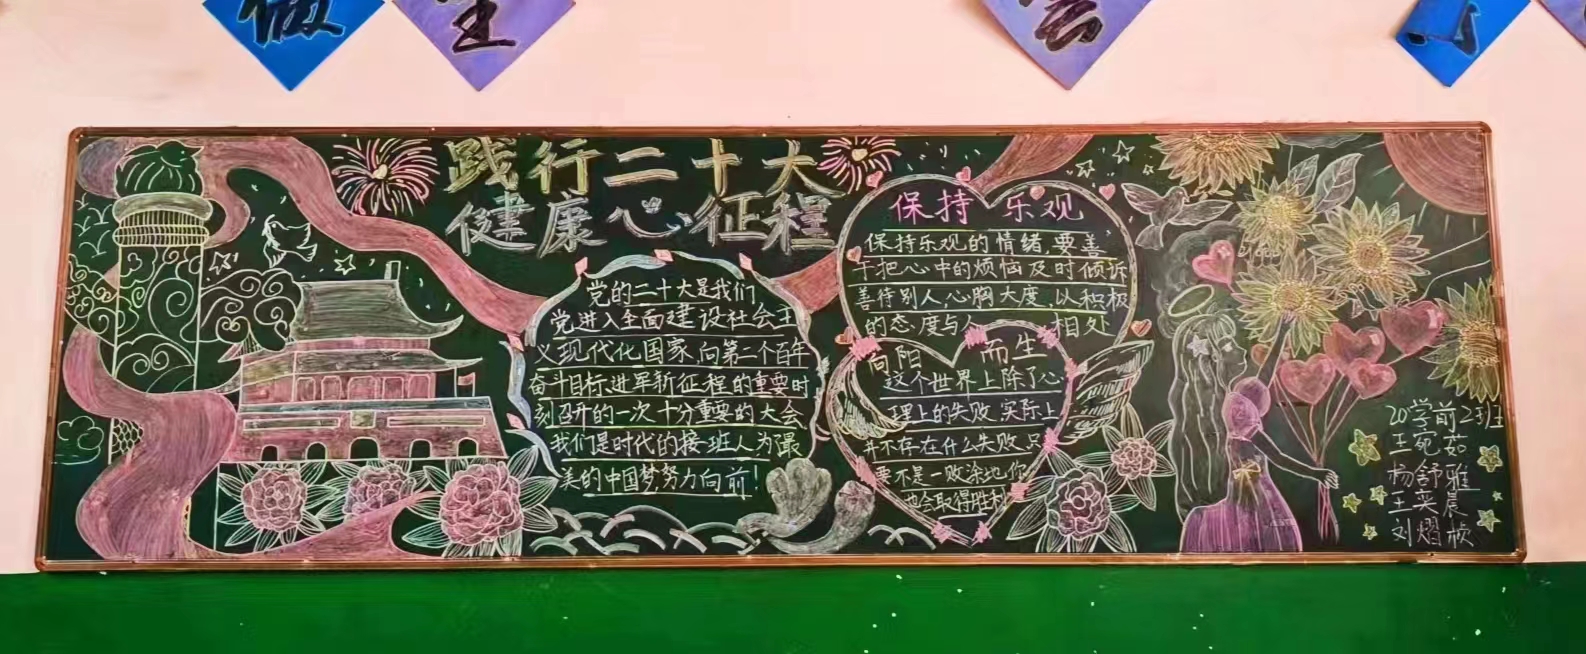 做
生
会
践行二十大
健康心征程
党的二十大是我们
党进入全面建设社会主
义现代化国家,向第二个百年
奋斗目标,进军新征程的重要时
刻召开的一次十分重要的大会
我们是时代的接班人为最
美的中国梦努力向前!
保持乐观
保持乐观的情绪,要善
于把心中的烦恼及时倾诉
善待别人心胸大度,以积极
的态度与人 相处
向阳 而生
这个世界上除了心
理上的失败,实际上
并不存在什么失败,只
要不是一败涂地,你
也会取得胜利
20学前2班
王苑茹
杨舒雅
王奕晨
刘熠桢